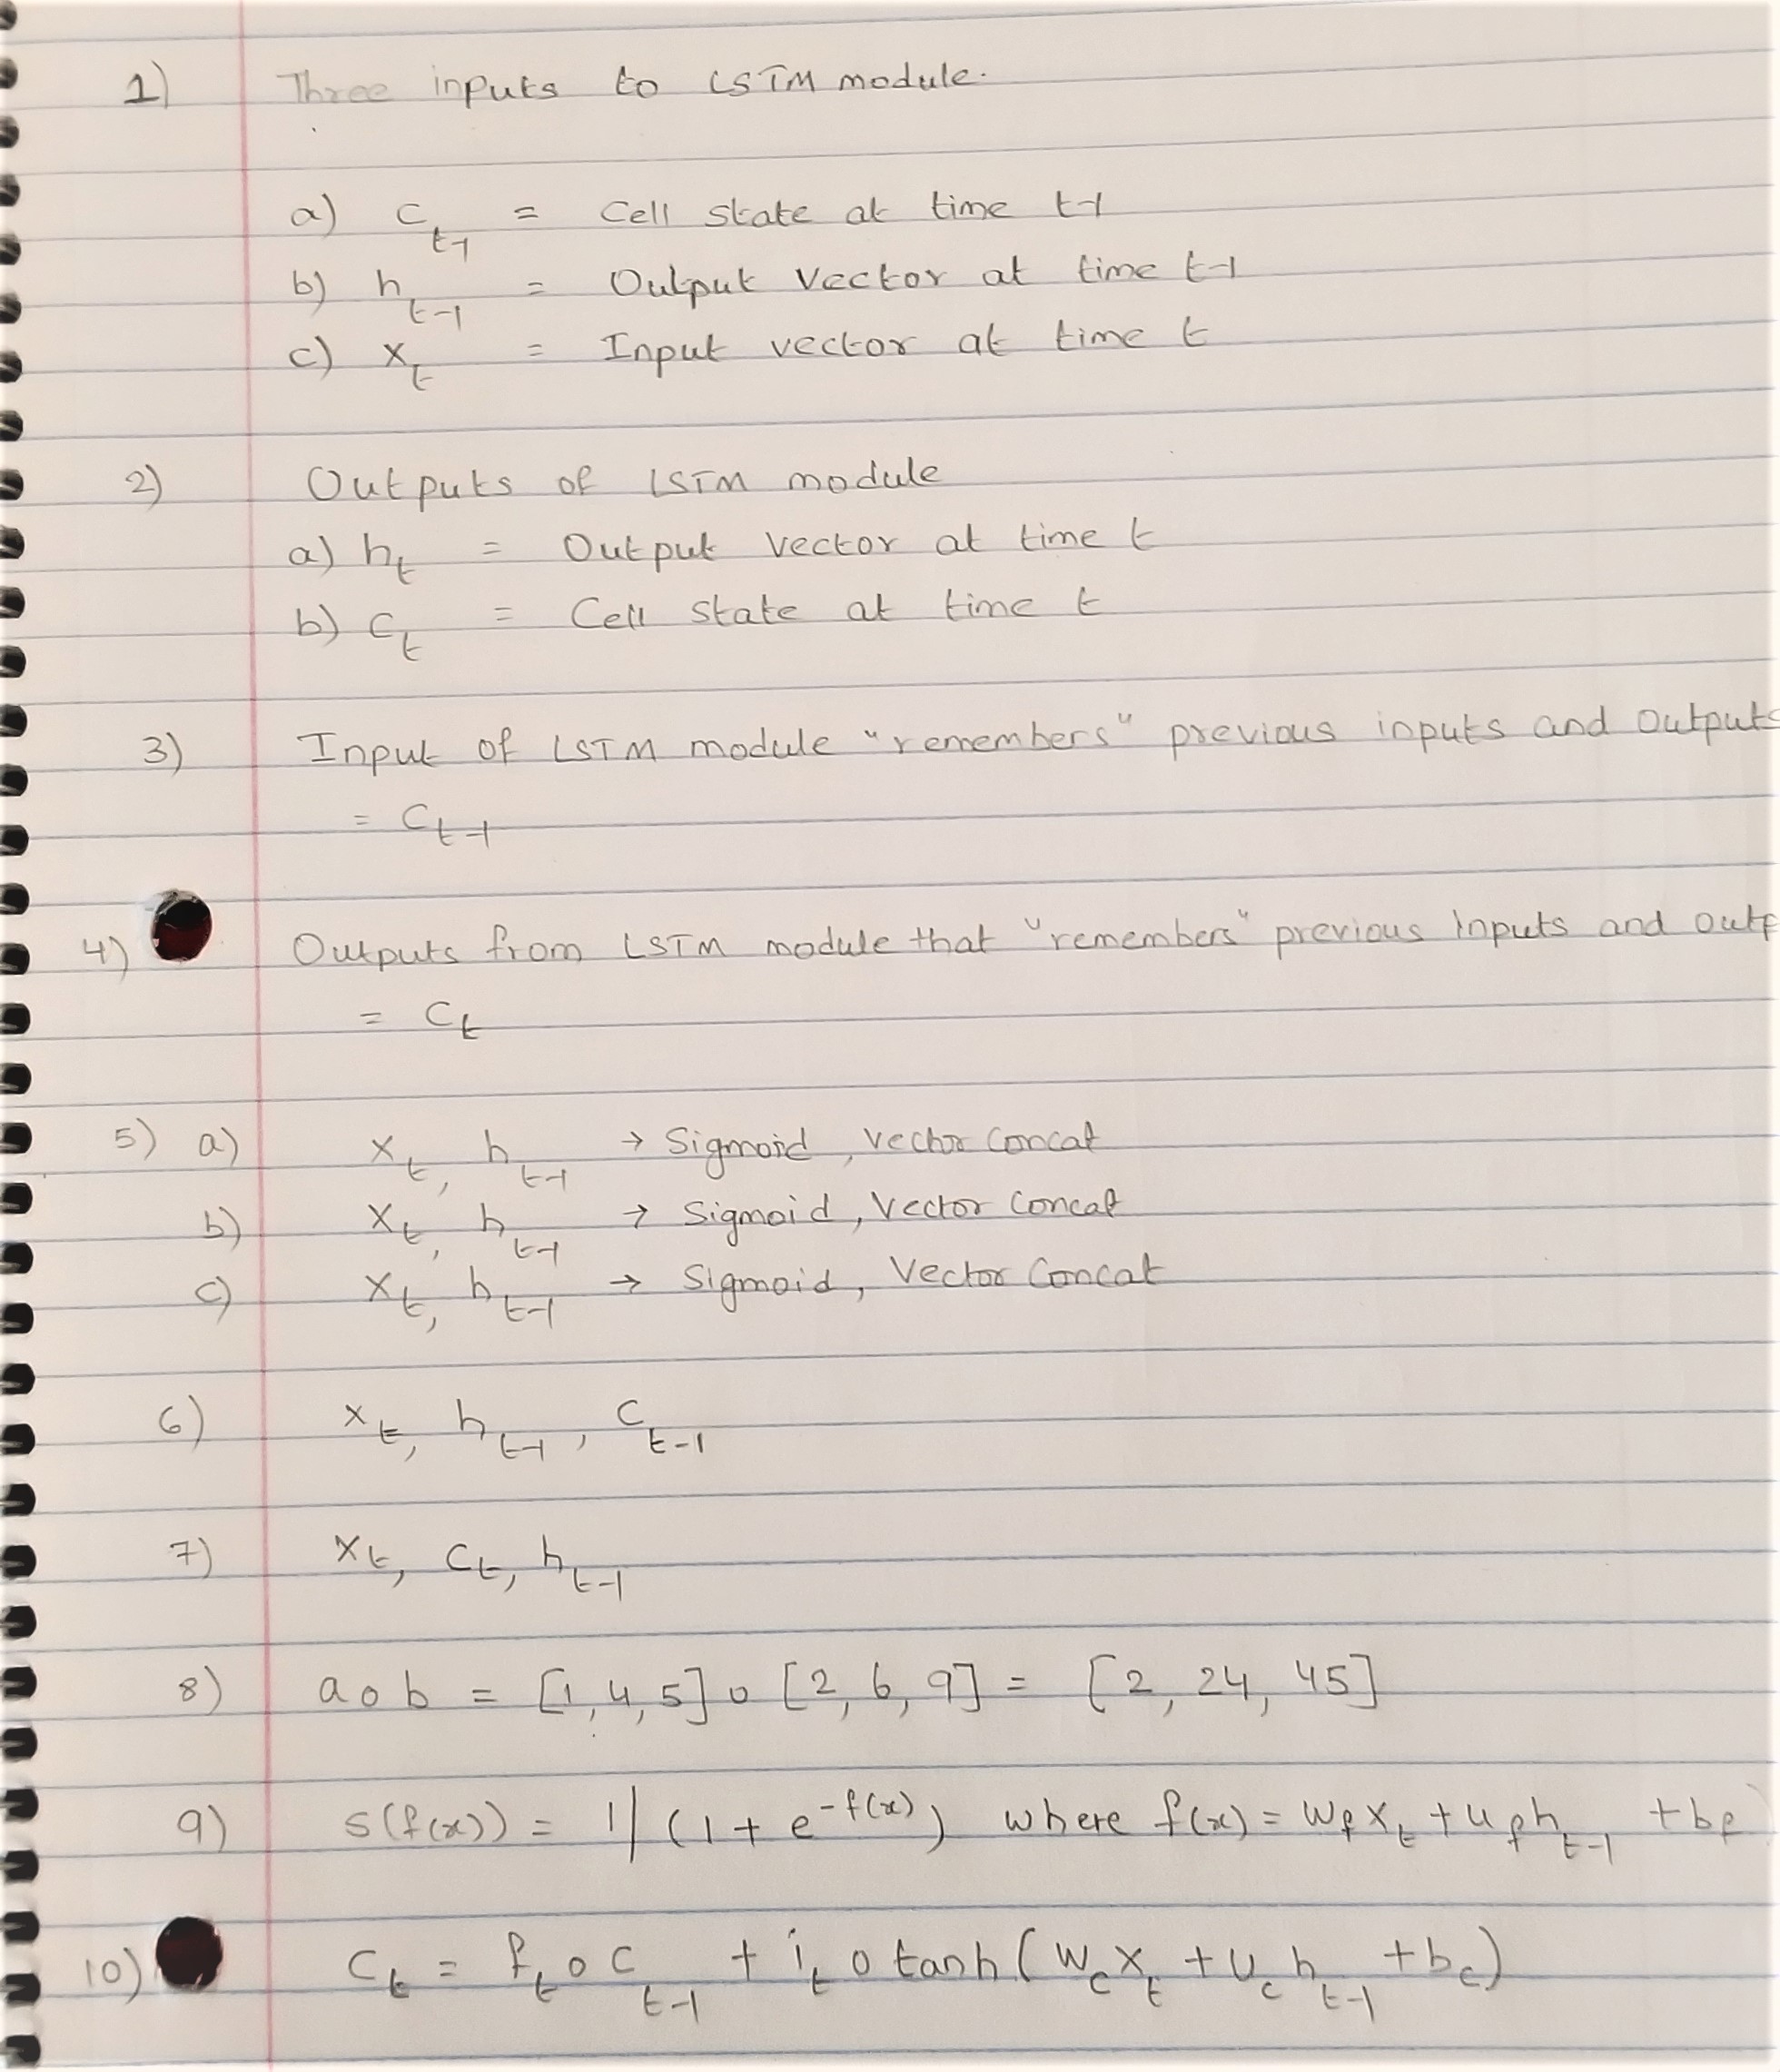 1) Three inputs to LSTM module.
a) C_{t-1} = Cell state at time t-1
b) h_{t-1} = Output Vector at time t-1
c) x_t = Input vector at time t
2) Outputs of LSTM module
a) h_t = Output Vector at time t
b) C_t = Cell state at time t
3) Input of LSTM module "remembers" previous inputs and outputs
= C_{t-1}
4) Outputs from LSTM module that "remembers" previous inputs and outp
= C_t
5) a) x_t, h_{t-1} → Sigmoid, Vector Concat
b) x_t, h_{t-1} → Sigmoid, Vector Concat
c) x_t, h_{t-1} → Sigmoid, Vector Concat
6) x_t, h_{t-1}, C_{t-1}
7) x_t, C_t, h_{t-1}
8) a o b = [1, 4, 5] o [2, 6, 9] = [2, 24, 45]
9) s(f(x)) = 1/(1 + e^{-f(x)}) where f(x) = W_f x_t + U_f h_{t-1} + b_f
10) C_t = f_t o C_{t-1} + i_t o tanh(W_c x_t + U_c h_{t-1} + b_c)